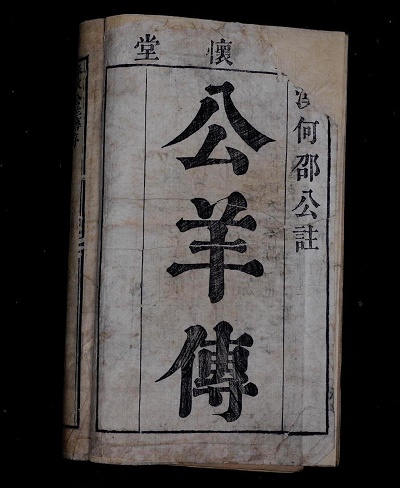 懷堂
何邵公註
公羊傳